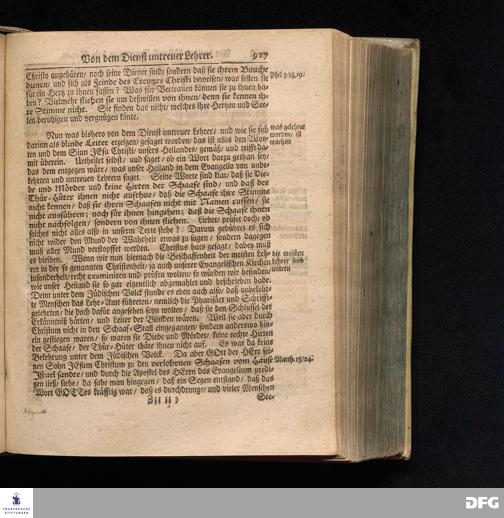 Von dem Dienst untreuer Lehrer. 917
Christo angehören/ noch seine Diener sind/ sondern daß sie ihrem Bauche Phil 3/18.19.
dienen/ und sich als Feinde des Creutzes Christi beweisen/ was sollen sie
für ein Hertz zu ihnen fassen? Was für Vertrauen können sie zu ihnen ha-
ben? Vielmehr fliehen sie um deßwillen von ihnen/ denn sie kennen ih-
re Stimme nicht. Sie finden das nicht/ welches ihre Hertzen und See-
len beruhigen und vergnügen könte.
Nun was bißhero von dem Dienst untreuer Lehrer/ und wie sie sich was gelehret
darinn als blinde Leiter erzeigen/ gesaget worden/ das ist alles den Wor- worden, ist
ten und dem Sinn JEsu Christi unsers Heilandes/ gemäß/ und trifft da- warheit
mit überein. Urtheilet selbst/ und saget/ ob ein Wort darzu gethan sey/
das dem entgegen wäre/ was unser Heiland in dem Evangelio von unbe-
kehrten und untreuen Lehrern saget. Seine Worte sind klar/ daß sie Die-
be und Mörder und keine Hirten der Schaafe sind/ und daß der
Thür-Hüter ihnen nicht aufthue/ daß die Schaafe ihre Stimme
nicht kennen/ daß sie ihren Schaafen nicht mit Namen ruffen/ sie
nicht ausführen; noch für ihnen hingehen; daß die Schaafe ihnen
nicht nachfolgen/ sondern von ihnen fliehen. Lieber/ prüfet doch/ ob
solches nicht alles also in unserm Texte stehe? Darum gebühret es sich
nicht wider den Mund der Wahrheit etwas zu sagen/ sondern dagegen
muß aller Mund verstopffet werden. Christus hats gesagt/ dabey muß
es bleiben. Wenn wir nun hiernach die Beschaffenheit der meisten Leh- die meisten
rer in der so genannten Christenheit/ ja auch unserer Evangelischen Kirchen Lehrer sind
insonderheit/ recht examiniren und prüfen wolten/ so würden wir befinden/ untreu
wie unser Heiland sie so gar eigentlich abgemahlet und beschrieben habe.
Denn unter dem Jüdischen Volck stunde es eben auch also/ daß unbekehr-
te Menschen das Lehr-Amt führeten/ nemlich die Pharisäer und Schrifft-
gelehrten/ die doch dafür angesehen seyn wolten/ daß sie den Schlüssel der
Erkänntniß hätten/ und Leiter der Blinden wären. Weil sie aber durch
Christum nicht in den Schaaf-Stall eingegangen/ sondern anderswo hin-
ein gestiegen waren/ so waren sie Diebe und Mörder/ keine rechte Hirten
der Schaafe/ der Thür-Hüter thäte ihnen nicht auf. Es war da keine
Bekehrung unter dem Jüdischen Volck. Da aber GOtt der HErr sei-
nen Sohn JEsum Christum zu den verlohrnen Schaafen vom Hause Matth. 15/24.
Israel sandte/ und durch die Apostel des HErrn das Evangelium predi-
gen ließ/ siehe/ da sahe man hingegen/ daß ein Segen entstand/ daß das
Wort GOTTes kräfftig war/ daß es durchdrung/ und vieler Menschen
See-
FRANCKESCHE
STIFTUNGEN
DFG